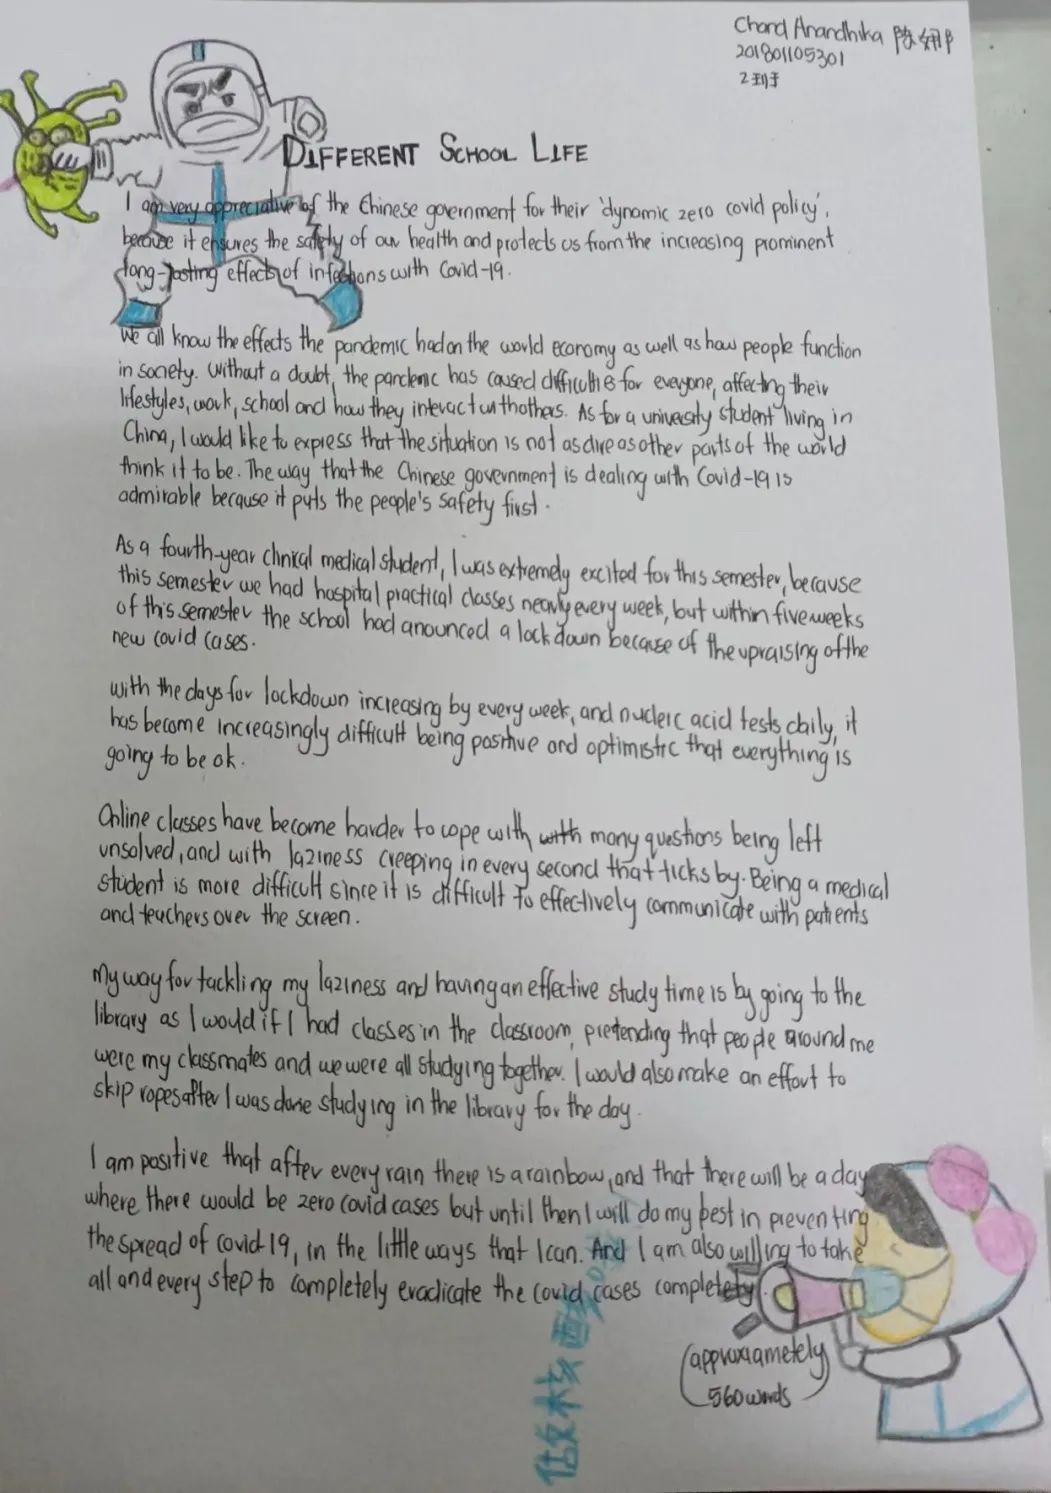 Chand Anandhika 陈娜
201801105301
2班
DIFFERENT SCHOOL LIFE
I am very appreciative of the Chinese government for their 'dynamic zero covid policy',
because it ensures the safety of our health and protects us from the increasing prominent
long-lasting effects of infections with Covid-19.
We all know the effects the pandemic had on the world economy as well as how people function
in society. Without a doubt, the pandemic has caused difficulties for everyone, affecting their
lifestyles, work, school and how they interact with others. As for a university student living in
China, I would like to express that the situation is not as dire as other parts of the world
think it to be. The way that the Chinese government is dealing with Covid-19 is
admirable because it puts the people's safety first.
As a fourth-year clinical medical student, I was extremely excited for this semester, because
this semester we had hospital practical classes nearly every week, but within five weeks
of this semester the school had anounced a lockdown because of the upraising of the
new covid cases.
With the days for lockdown increasing by every week, and nucleic acid tests daily, it
has become increasingly difficult being positive and optimistic that everything is
going to be ok.
Online classes have become harder to cope with with many questions being left
unsolved, and with laziness creeping in every second that ticks by. Being a medical
student is more difficult since it is difficult to effectively communicate with patients
and teachers over the screen.
My way for tackling my laziness and having an effective study time is by going to the
library as I would if I had classes in the classroom, pretending that people around me
were my classmates and we were all studying together. I would also make an effort to
skip ropes after I was done studying in the library for the day.
I am positive that after every rain there is a rainbow, and that there will be a day
where there would be zero covid cases but until then I will do my best in preventing
the spread of covid-19, in the little ways that I can. And I am also willing to take
all and every step to completely eradicate the covid cases completely.
(approxiametely
560 words)
做核酸